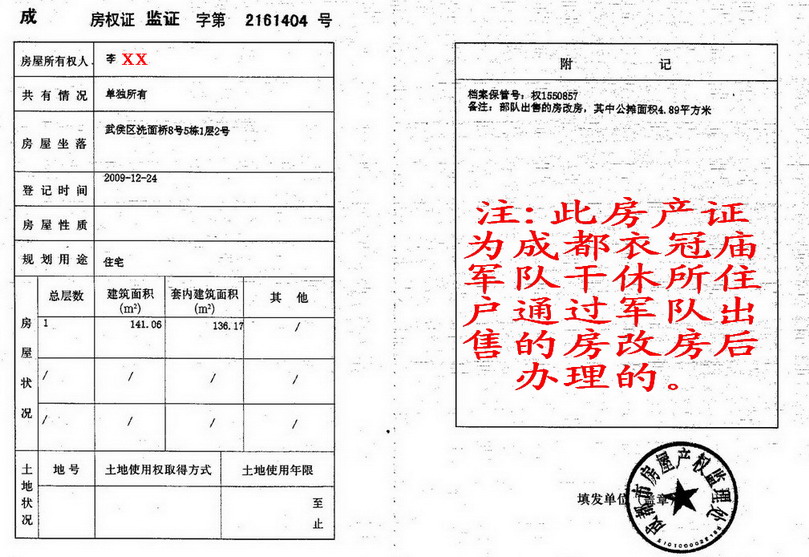 成 房权证 监证 字第 2161404 号
房屋所有权人 李XX
共有情况 单独所有
房屋坐落 武侯区洗面桥8号5栋1层2号
登记时间 2009-12-24
房屋性质
规划用途 住宅
房屋状况
总层数 建筑面积(m²) 套内建筑面积(m²) 其他
1 141.06 136.17 /
/ / / /
/ / / /
土地状况
地号 土地使用权取得方式 土地使用年限
至
止
附记
档案保管号：权1550857
备注：部队出售的房改房，其中公摊面积4.89平方米
注：此房产证
为成都衣冠庙
军队干休所住
户通过军队出
售的房改房后
办理的。
填发单位（盖章）
成都市房屋产权监理处